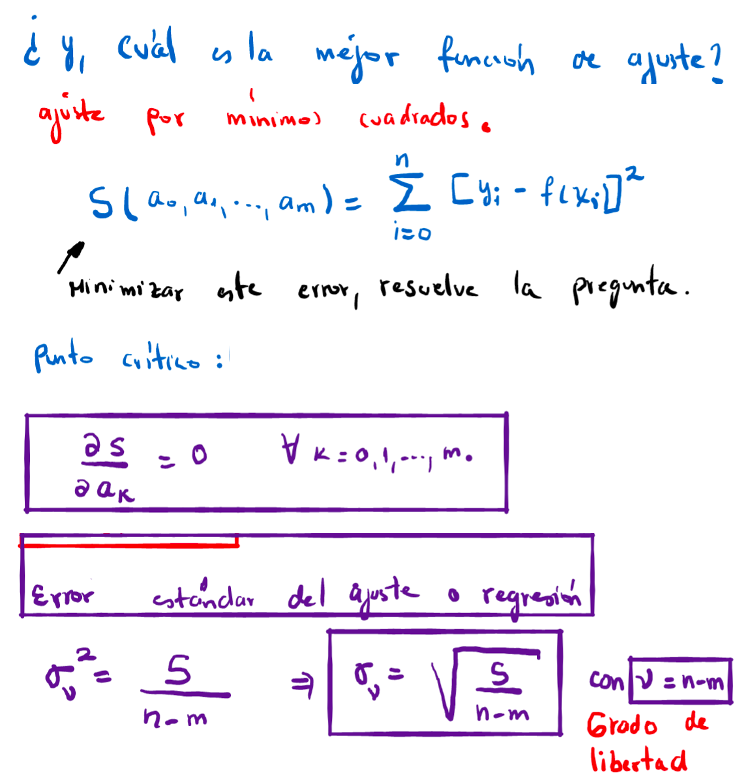 ¿ y, cuál es la mejor función de ajuste?
ajuste por mínimos cuadrados.
S(a₀, a₁, ..., aₘ) = ∑ⁿᵢ₌₀ [yᵢ - f(xᵢ)]²
Minimizar este error, resuelve la pregunta.
Punto crítico:
∂S/∂aₖ = 0 ∀ k = 0, 1, ..., m.
Error estándar del ajuste o regresión
σᵥ² = S/(n-m) ⇒ σᵥ = √(S/(n-m)) con ν = n-m
Grado de
libertad